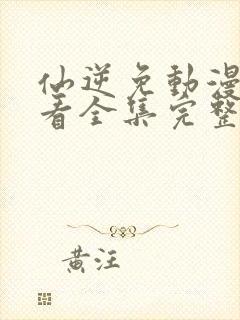 仙逆免動漫
看全集完整
黃汪